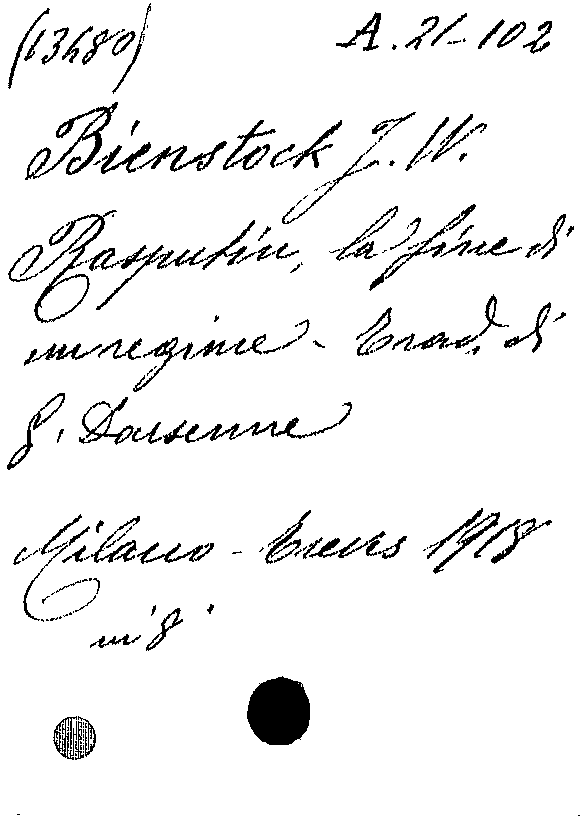 (13480) A. 21-102
Bienstock J. W.
Rasputin, la fine di
un regime - Trad. di
G. Darsenne
Milano - Treves 1918
in 8°